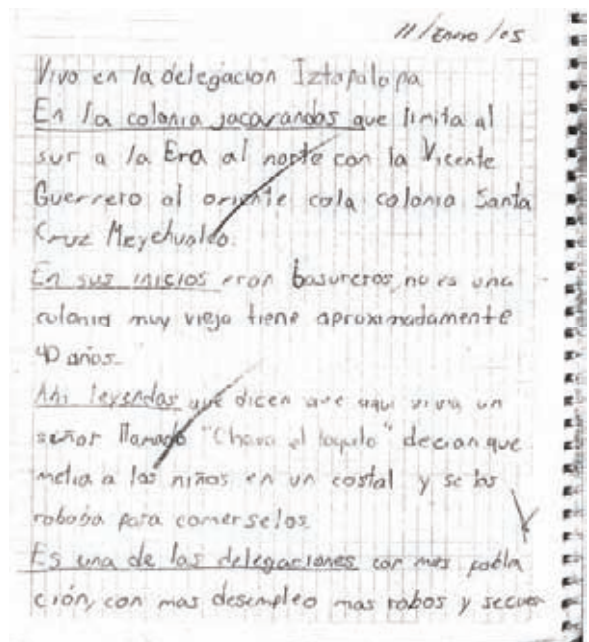 11/Enero/05
Vivo en la delegacion Iztapalapa
En la colonia jacarandas que limita al
sur a la Era al norte con la Vicente
Guerrero al oriente cola colonia Santa
Cruz Meyehualco.
En sus inicios eran basureros, no es una
colonia muy vieja tiene aproximadamente
40 años.
Ahi leyendas que dicen que aqui vivia un
señor llamado "Chava el loquito" decian que
metia a los niños en un costal y se los
robaba para comerselos.
Es una de las delegaciones con mas pobla
ción, con mas desempleo mas robos y secues